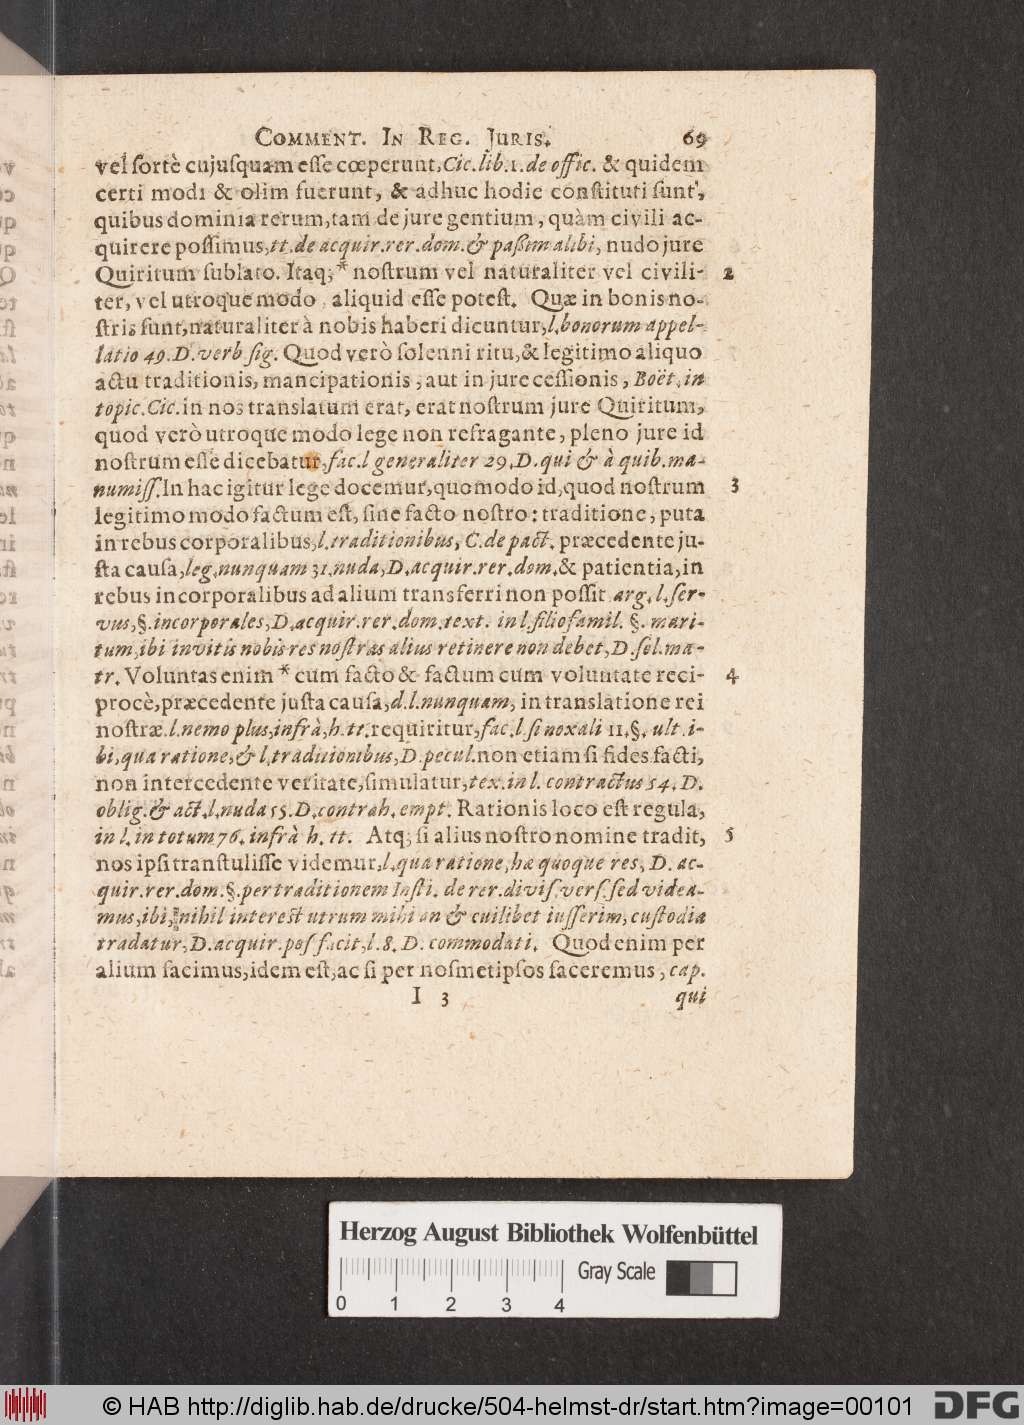 COMMENT. IN REG. JURIS. 69
vel fortè cujusquam esse cœperunt, Cic. lib. 1. de offic. & quidem
certi modi & olim fuerunt, & adhuc hodie constituti sunt,
quibus dominia rerum, tam de jure gentium, quàm civili ac-
quirere possimus, tt. de acquir. rer. dom. & paßim alibi, nudo jure
Quiritum sublato. Itaq; * nostrum vel naturaliter vel civili- 2
ter, vel utroque modo aliquid esse potest. Quæ in bonis no-
stris sunt, naturaliter à nobis haberi dicuntur, l. bonorum appel-
latio 49. D. verb sig. Quod verò solenni ritu, & legitimo aliquo
actu traditionis, mancipationis, aut in jure cessionis, Boët. in
topic. Cic. in nos translatum erat, erat nostrum jure Quiritum,
quod verò utroque modo lege non refragante, pleno jure id
nostrum esse dicebatur, fac. l generaliter 29. D. qui & à quib. ma-
numiss. In hac igitur lege docemur, quomodo id, quod nostrum 3
legitimo modo factum est, sine facto nostro: traditione, puta
in rebus corporalibus, l. traditionibus, C. de pact. præcedente ju-
sta causa, leg. nunquam 31. nuda, D. acquir. rer. dom. & patientia, in
rebus incorporalibus ad alium transferri non possit arg. l. ser-
vus, §. incorporales, D. acquir. rer. dom. text. in l. filiofamil. §. mari-
tum, ibi invitis nobis res nostras alius retinere non debet, D. sol. ma-
tr. Voluntas enim * cum facto & factum cum voluntate reci- 4
procè, præcedente justa causa, d. l. nunquam, in translatione rei
nostræ. l. nemo plus, infrà, h. tt. requiritur, fac. l si noxali 11. §. ult. i-
bi, qua ratione, & l. traditionibus, D. pecul. non etiam si fides facti,
non intercedente veritate, simulatur, tex. in l. contractus 54. D.
oblig. & act. l. nuda 55. D. contrah. empt. Rationis loco est regula,
in l. in totum 76. infrà h. tt. Atq; si alius nostro nomine tradit, 5
nos ipsi transtulisse videmur, l. qua ratione, hæ quoque res, D. ac-
quir. rer. dom. §. per traditionem Insti. de rer. divis. vers. sed videa-
mus, ibi, nihil interest utrum mihi an & cuilibet jusserim, custodia
tradatur, D. acquir. pos facit, l. 8. D. commodati. Quod enim per
alium facimus, idem est, ac si per nosmetipsos faceremus, cap.
I 3 qui
Herzog August Bibliothek Wolfenbüttel
Gray Scale
0 1 2 3 4
© HAB http://diglib.hab.de/drucke/504-helmst-dr/start.htm?image=00101 DFG